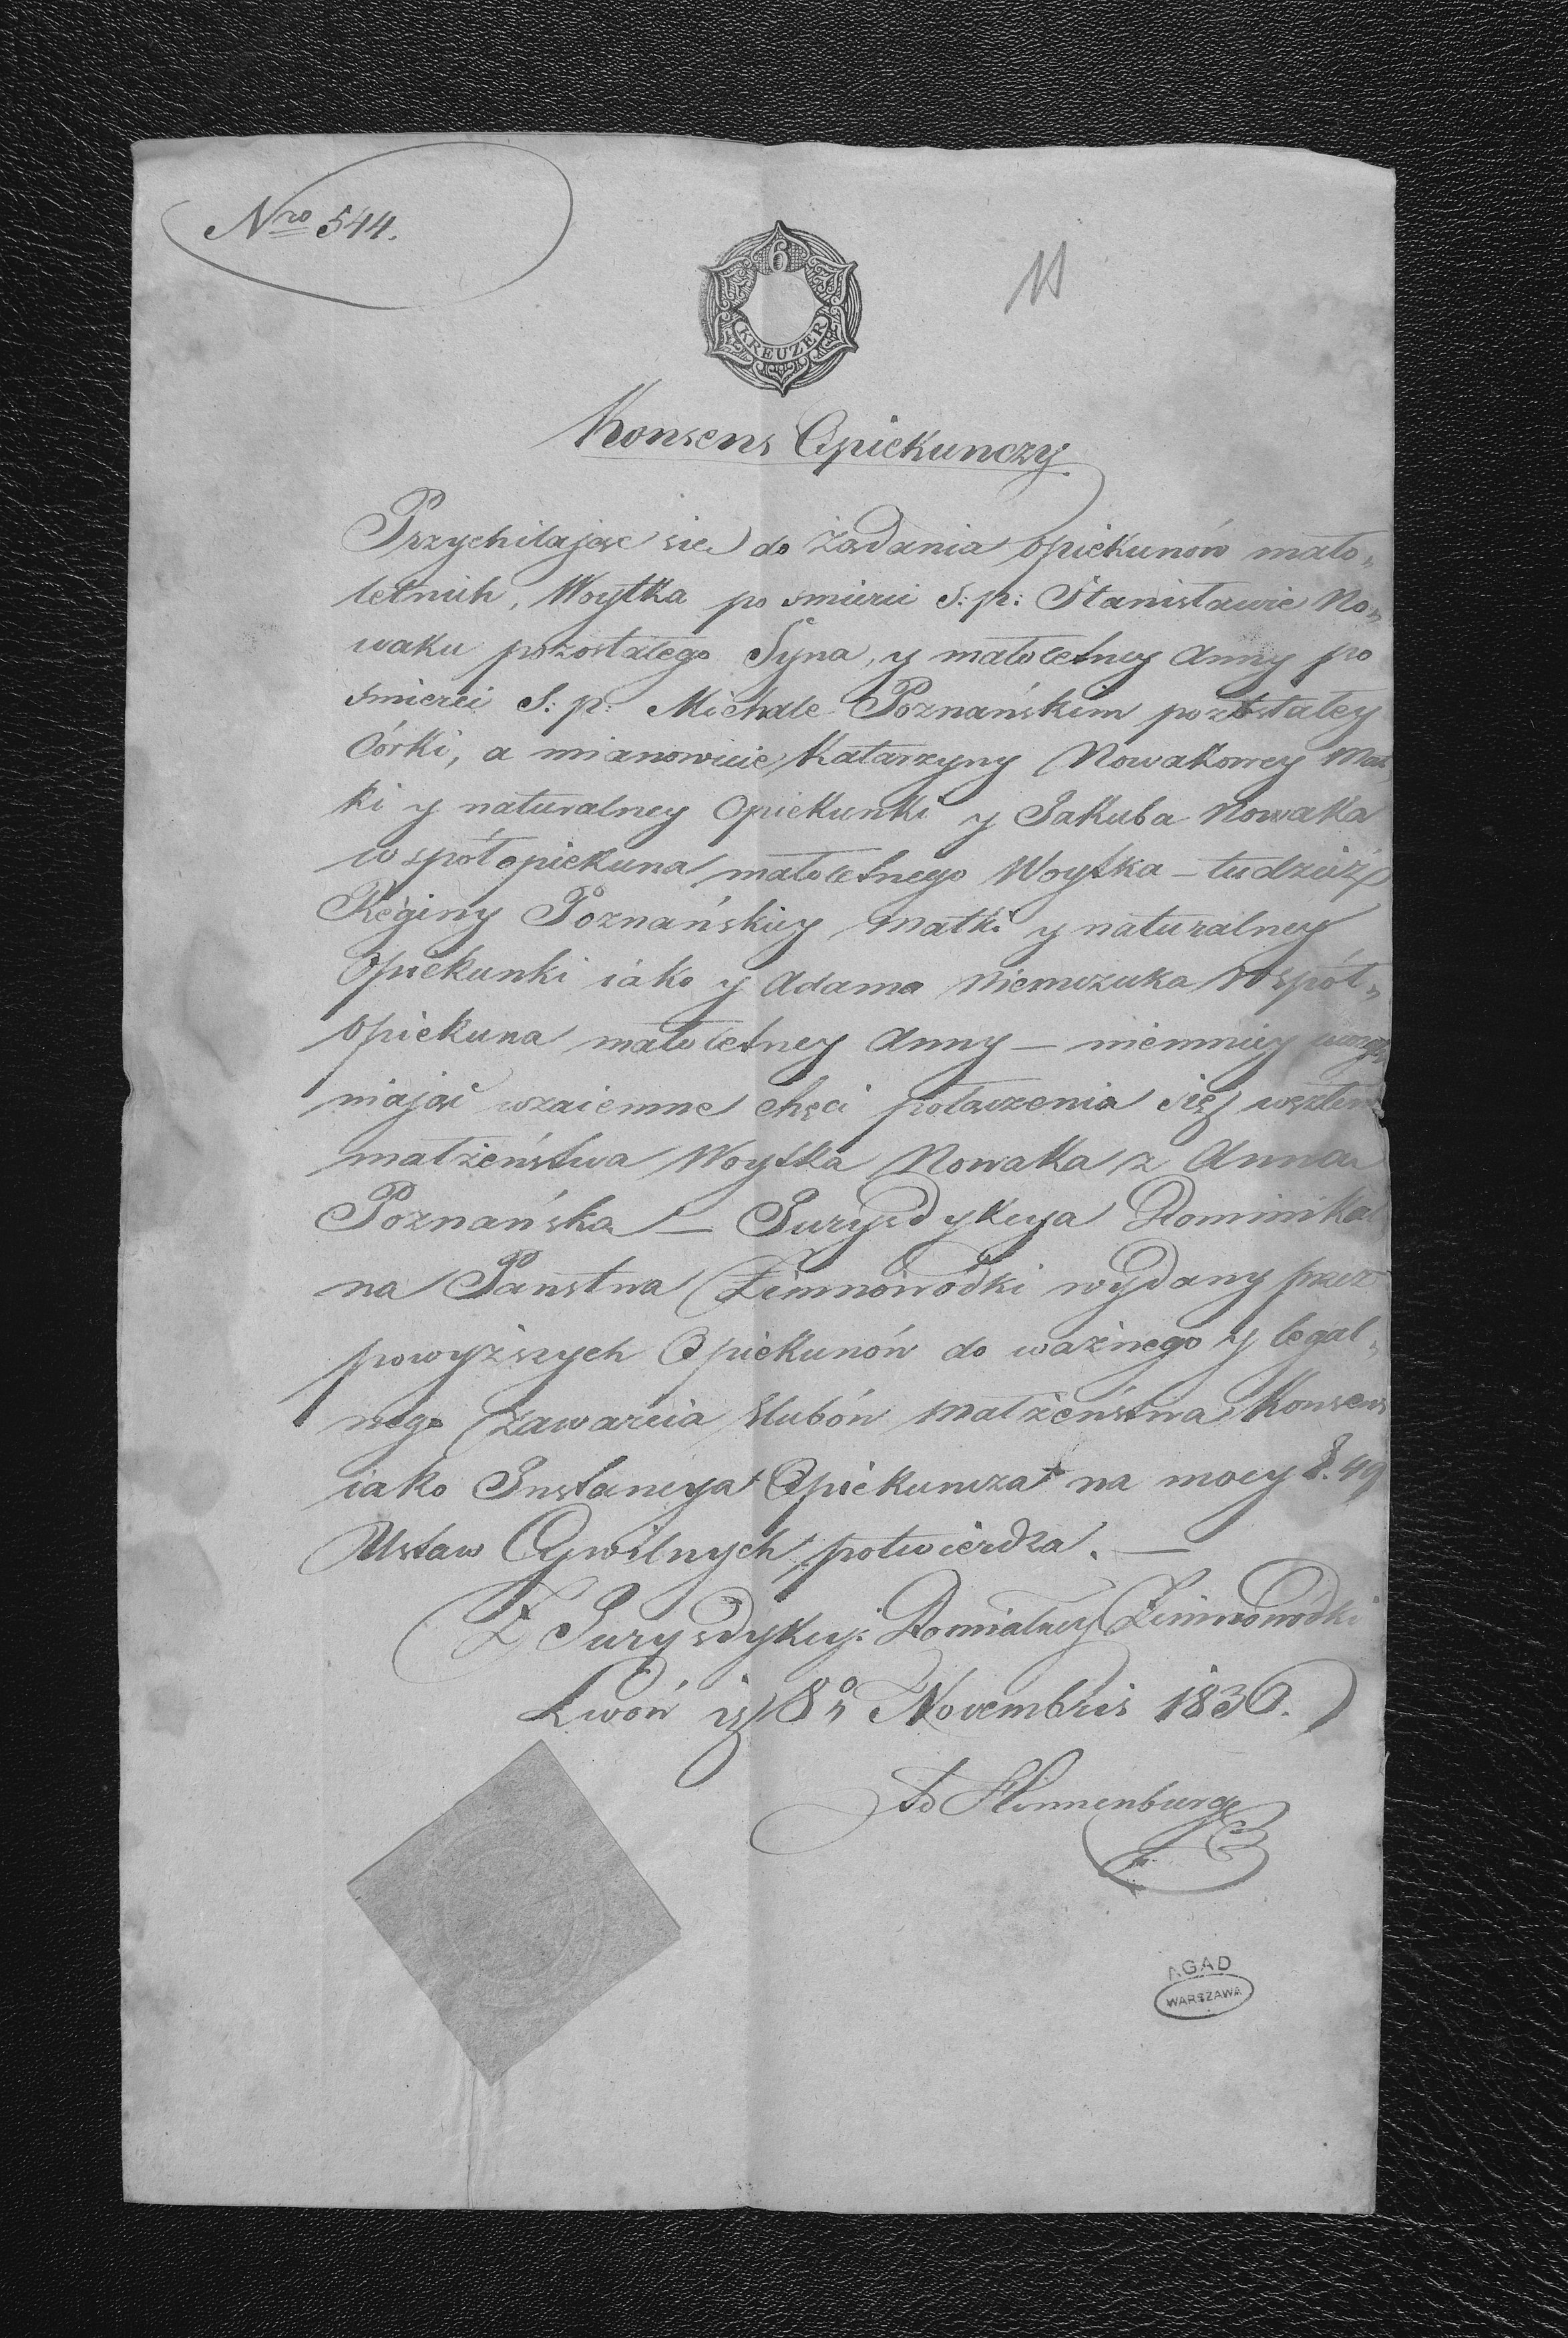 Nro 544.
6
KREUZER
Konsens Opiekunczy
Przychilając się do żądania Opiekunów mało„
letnich, Woytka po śmierci S: p: Stanisławie No„
waku pozostałego Syna, y małoletney Anny po
śmierci S: p: Michale Poznańskim pozostałey
Córki, a mianowicie Katarzyny Nowakowey Mat
ki y naturalney Opiekunki y Jakuba Nowaka
współopiekuna małoletnego Woytka – tudzież
Reginy Poznańskiey Matki y naturalney
Opiekunki iako y Adama Niemczuka Współ„
opiekuna małoletney Anny – niemniey
maiąc wzaiemne chęci połączenia się węzłem
małżeństwa Woytka Nowaka z Anną
Poznańską – Jurysdykcya Dominikal
na Państwa Zimnowódki wydany przez
powyższych Opiekunów do ważnego y legal„
nego zawarcia ślubów małżeństwa Konsens
iako Instancya Opiekuncza na mocy §. 49
Ustaw Cywilnych potwierdza. —
Z Jurysdykcyi Domialney Zimnowódki
Lwów 8° Novembris 1836.
AGAD
WARSZAWA